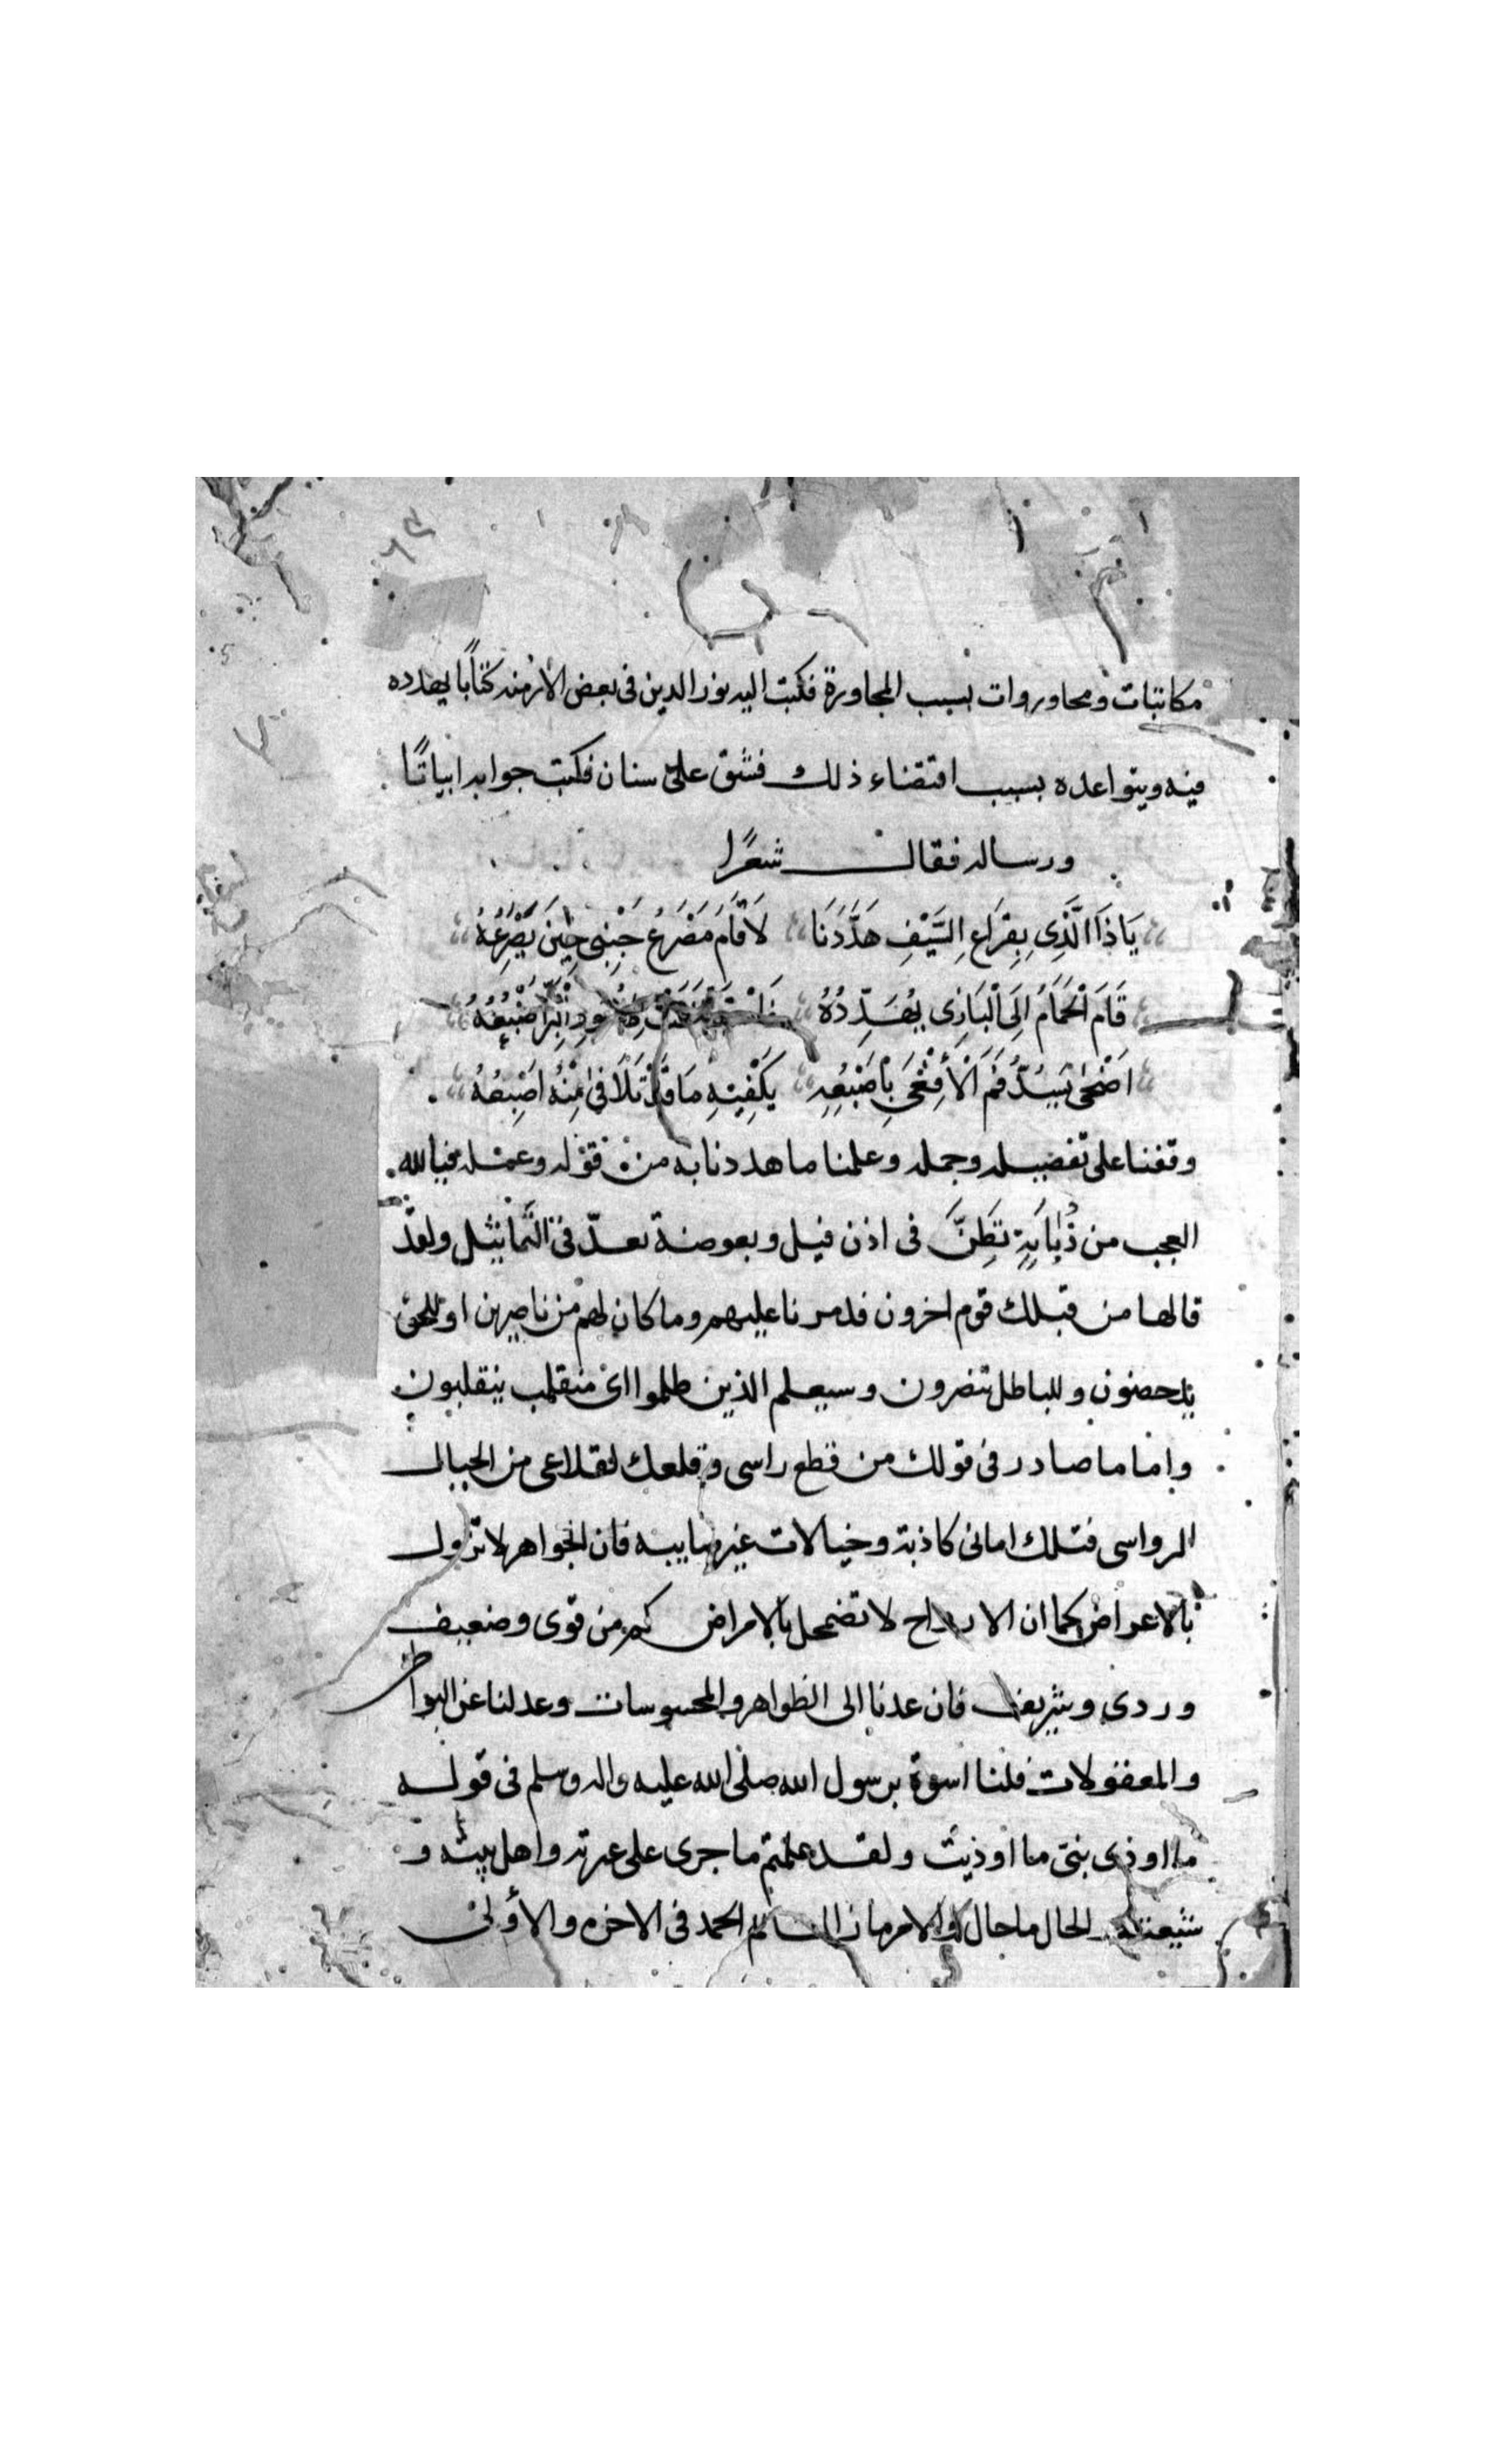 مكاتبات ومحاوروات بسبب المجاورة فكتب اليه نور الدين في بعض الازمنه كتاباً يهدده
فيه ويتواعده بسبب اقتضاء ذلك فشق على سنان فكتب جوابه ابياتًا
ورساله فقال شعرًا
يَا ذَا الَّذِي بِقِرَاعِ السَّيْفِ هَدَّدَنَا لَا قَامَ مَصْرَعُ جَنْبِي حِينَ يَصْرَعُهُ
قَامَ الْحَمَامُ اِلَى الْبَازِي يُهَدِّدُهُ اَضْبُعُهُ
اَضْحَى يَسُدُّ فَمَ الْأَفْعَى بِاِصْبَعِهِ يَكْفِيهِ مَا قَدْ تَلَاقَى مِنْهُ اِصْبَعُهُ
وقفنا على تفصيله وجمله وعلمنا ما هددنا به من قوله وعمله فيا لله
العجب من ذُبَابَةٍ تَطِنَّ في اذن فيل وبعوضة تعدّ في التماثيل ولقد
قالها من قبلك قوم اخرون فدمرنا عليهم وما كان لهم من ناصرين او للحق
يدحضون وللباطل تنصرون وسيعلم الذين ظلموا اى منقلب ينقلبون
واما ما صادر في قولك من قطع راسي وقلعك لقلاعي من الجبال
الرواسي فتلك اماني كاذبة وخيالات غير صايبه فان الجواهر لا تزول
بالاعراض كما ان الارواح لا تضمحل بالامراض كم من قوى وضعيف
وردى وشريف فان عدنا الى الظواهر والمحسوسات وعدلنا عن البواطن
والمعقولات فلنا اسوة برسول الله صلى الله عليه واله وسلم في قوله
ما اوذى بنتى ما اوذيت ولقد علمتم ما جرى على عترته واهل بيته و
شيعته الحال ما حال والامر ما زال الحمد في الاخره والأولى